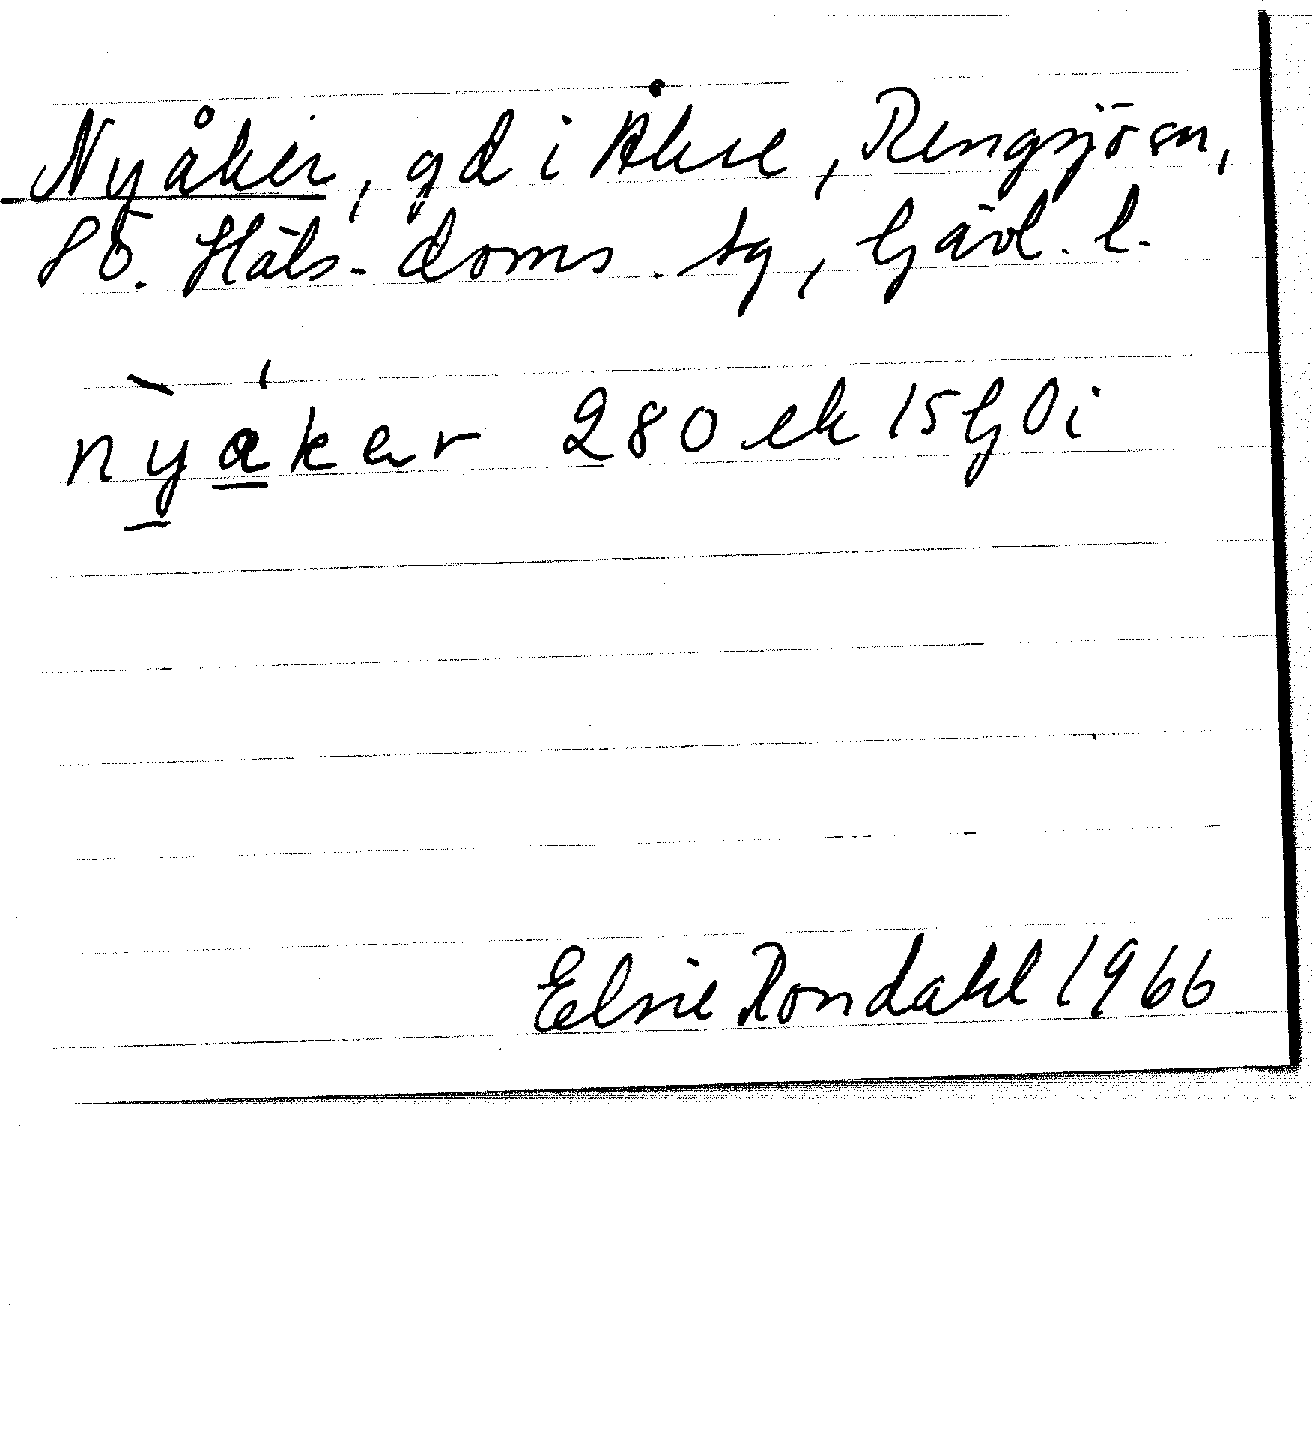 Nyåker, gd i Åkre, Rengsjö sn,
Sö. Häls. doms. tg, Gävl. l.
nyaker 280 ek 15 G 0 i
Elsie Rondahl 1966